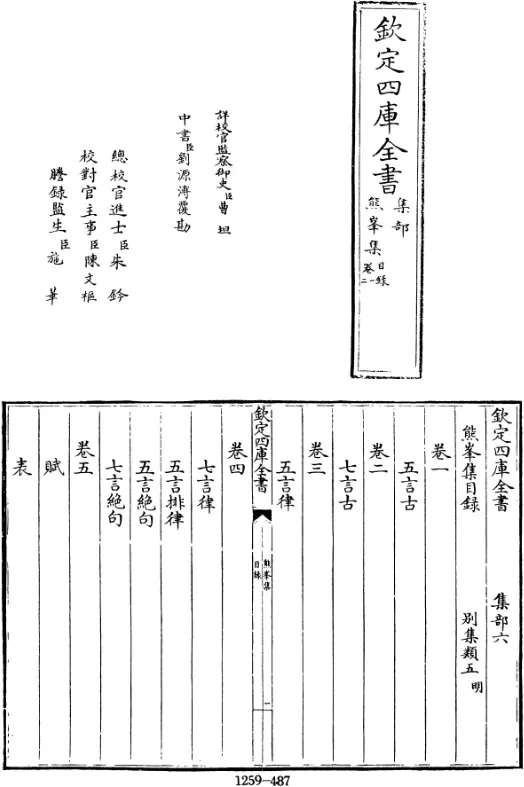 欽定四庫全書
集部
熊峯集
目録
卷一
二
詳校官監察御史臣曹坦
中書臣劉源溥覆勘
總校官進士臣朱鈐
校對官主事臣陳文樞
謄録監生臣施華
欽定四庫全書 集部六
熊峯集目録 別集類五明
卷一
五言古
卷二
七言古
卷三
五言律
欽定四庫全書
熊峯集
目録
一
卷四
七言律
五言排律
五言絶句
七言絶句
卷五
賦
表
1259-487